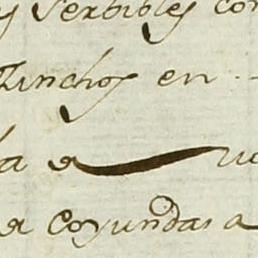 y Serbibles con
Zinchos en
la a
a coyundas a